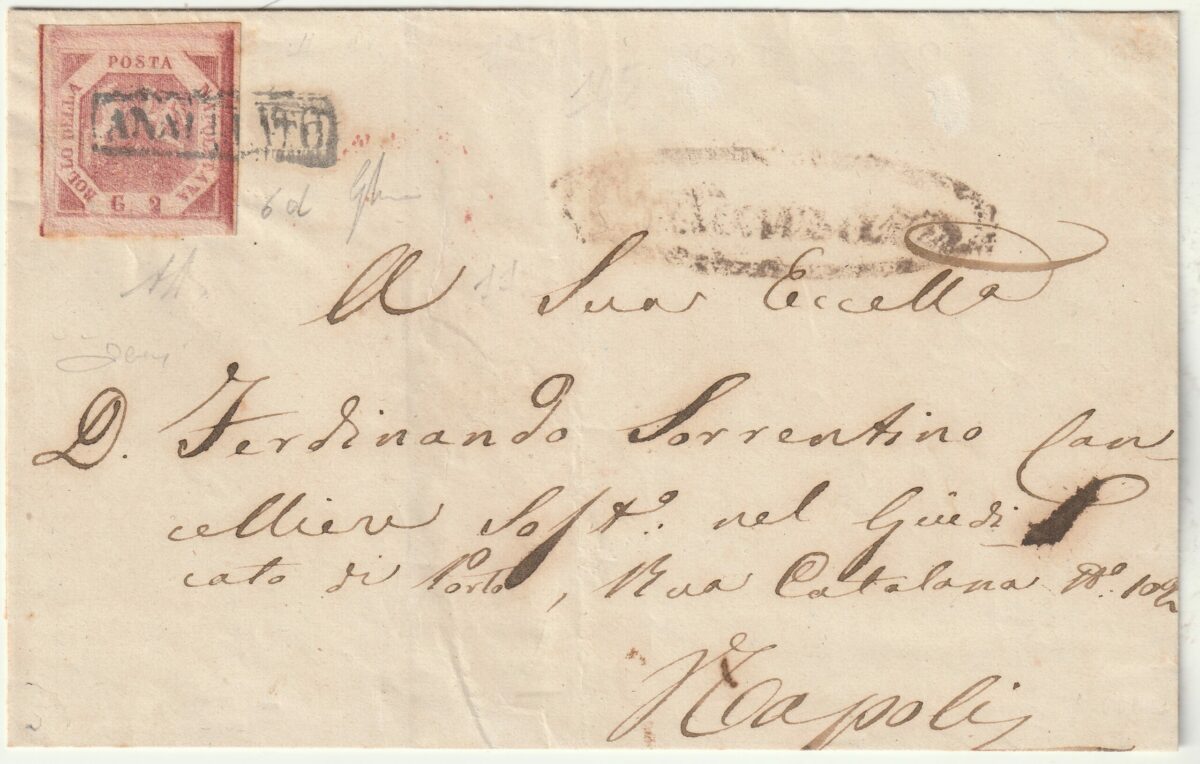 POSTA
NAPOLETANA
BOLLO DELLA
G. 2
6 d
A Sua Eccella
D. Ferdinando Sorrentino Can-
celliere Sost.º nel Giudi-
cato di Porto, Rua Catalana Nº.
Napoli